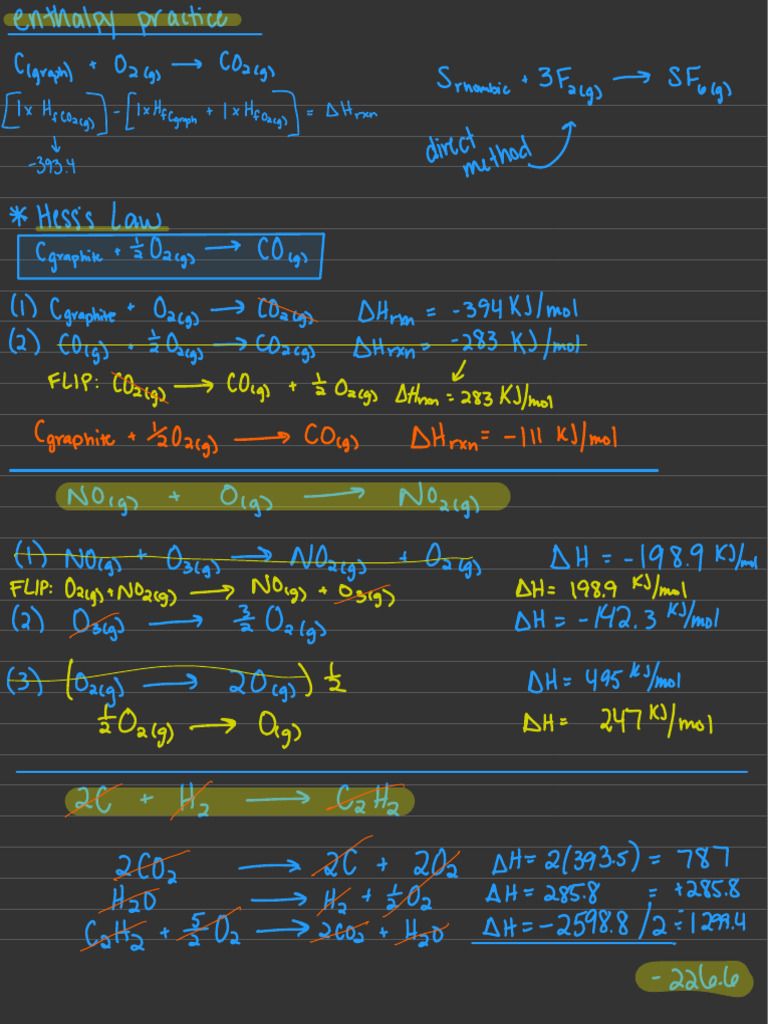 enthalpy practice
C(graph) + O₂(g) → CO₂(g)
S rhombic + 3F₂(g) → SF₆(g)
[1x H_f CO₂(g)] - [1x H_f Cgraph + 1x H_f O₂(g)] = ΔHrxn
↓
-393.4
direct method
* Hess's Law
C graphite + ½O₂(g) → CO(g)
(1) C graphite + O₂(g) → CO₂(g) ΔHrxn = -394 KJ/mol
(2) CO(g) + ½O₂(g) → CO₂(g) ΔHrxn = -283 KJ/mol
FLIP: CO₂(g) → CO(g) + ½O₂(g) ΔHrxn = 283 KJ/mol
C graphite + ½O₂(g) → CO(g) ΔHrxn = -111 KJ/mol
NO(g) + O(g) → NO₂(g)
(1) NO(g) + O₃(g) → NO₂(g) + O₂(g) ΔH = -198.9 KJ/mol
FLIP: O₂(g) + NO₂(g) → NO(g) + O₃(g) ΔH = 198.9 KJ/mol
(2) O₃(g) → 3/2 O₂(g) ΔH = -142.3 KJ/mol
(3) (O₂(g) → 2O(g)) ½ ΔH = 495 KJ/mol
½O₂(g) → O(g) ΔH = 247 KJ/mol
2C + H₂ → C₂H₂
2CO₂ → 2C + 2O₂ ΔH = 2(393.5) = 787
H₂O → H₂ + ½O₂ ΔH = 285.8 = +285.8
C₂H₂ + 5/2 O₂ → 2CO₂ + H₂O ΔH = -2598.8/2 = -1299.4
-226.6